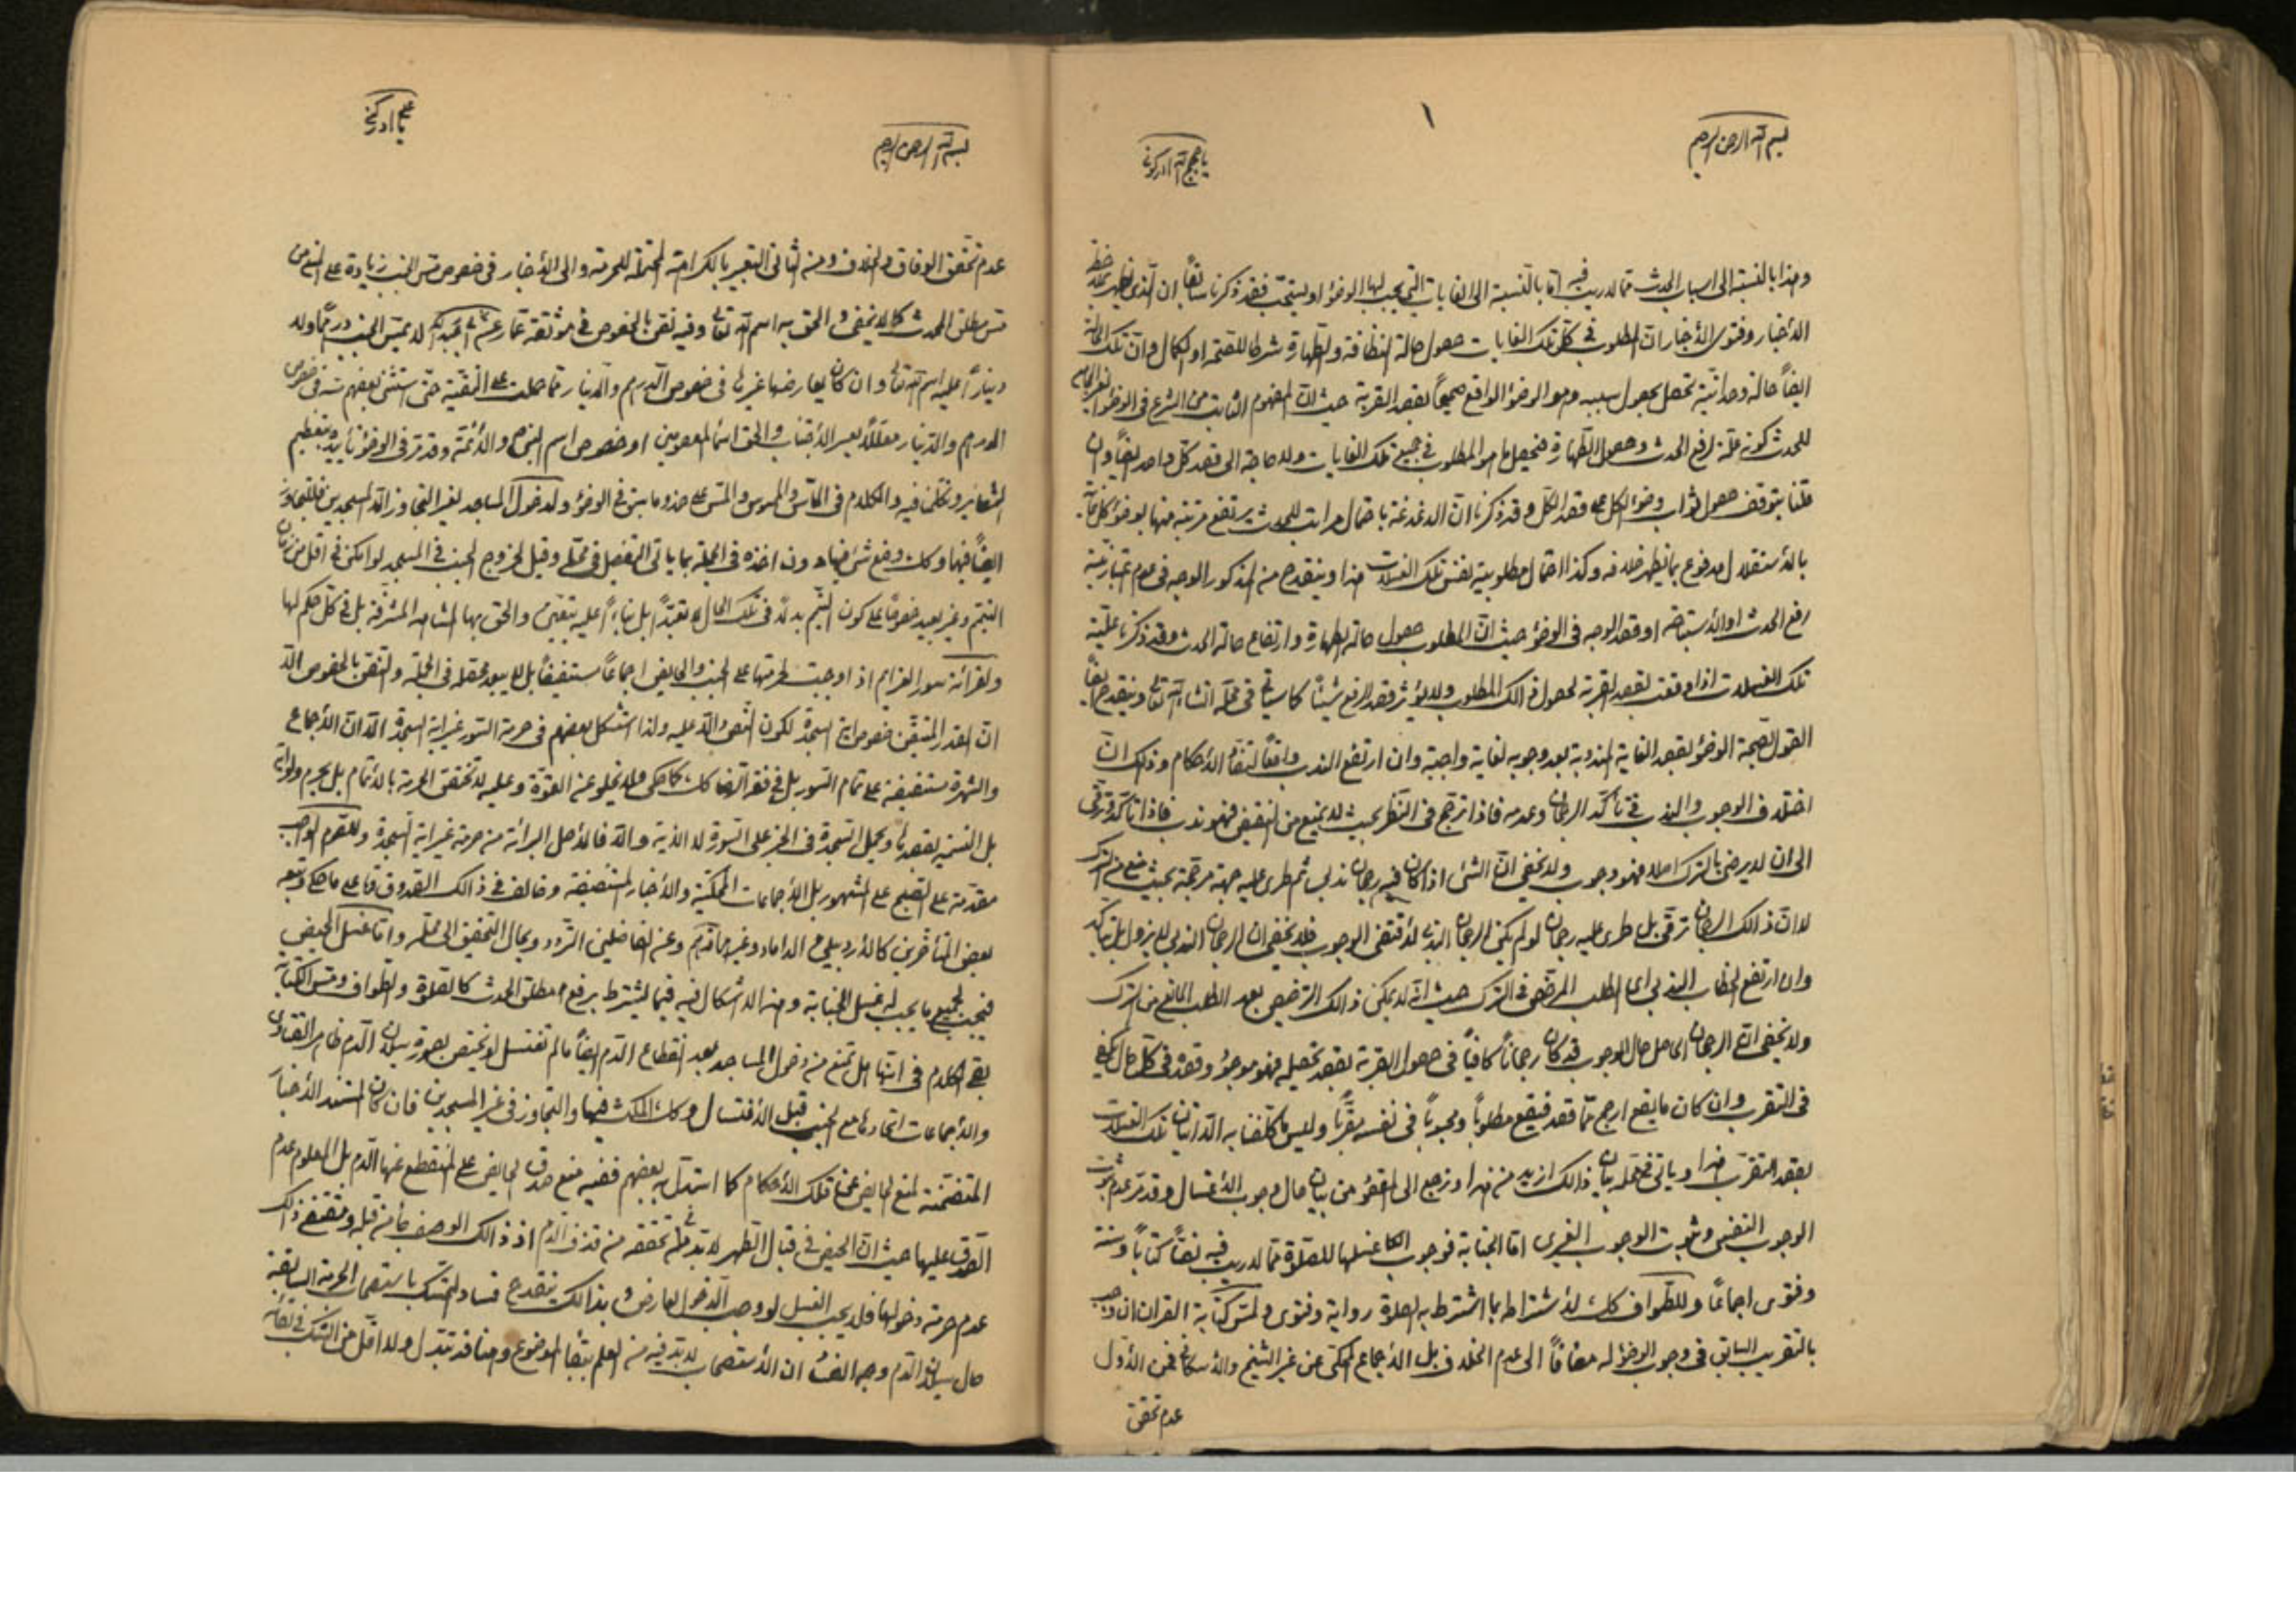 بسم الله الرحمن الرحيم
يا حجج الله ادركونى
١
وهذا بالنسبة الى اسباب الحدث مما لا ريب فيه اما بالنسبة الى الغايات التى يجب لها الوضوء او يستحب فقد ذكرنا سابقاً ان الذى يظهر
الأخبار وفتوى الأخيار ان المطلوب فى كل تلك الغايات حصول حالة النظافة والطهارة شرطا للصحة او الكمال وان تلك الحالة
ايضاً حالة وحدانية تحصل بحصول سببه وهو الوضوء الواقع صحيحاً بقصد القربة حيث ان المفهوم الثابت من الشرع فى الوضوء
للمحدث كونه علة لرفع الحدث وحصول الطهارة فيحصل ما هو المطلوب فى جميع تلك الغايات ولا حاجة الى قصد كل واحد ايضاً وان
قلنا بتوقف حصول ثواب وضوء الكل على قصد الكل وقد ذكرنا ان الدغدغة باحتمال مراتب للحدث يرتفع مرتبة منها بوضوء
بالأستقلال مدفوع بما يظهر خلافه وكذا احتمال مطلوبية نفس تلك الغسلات هذا وينقدح من المذكور الوجه فى عدم اعتبار نية
رفع الحدث او الأستباحة او قصد الوجه فى الوضوء حيث ان المطلوب حصول حالة الطهارة وارتفاع حالة الحدث وقد ذكرنا علية
تلك الغسلات اذا وقعت بقصد القربة لحصول ذالك المطلوب ولا يؤثر قصد الرفع شيئاً كما سيأتى فى محله انشاء الله تعالى وينقدح ايضاً
القول بصحة الوضوء بقصد الغاية المندوبة بعد وجوبه لغاية واجبة وان ارتفع الندب واقعاً لتضاد الأحكام وذلك ان
اختلاف الوجوب والندب فى تأكد الرجحان وعدمه فاذا ترجح فى النظر بحيث لا يمنع من النقيض فهو ندب فاذا تأكد وترقى
الى ان لا يرضى بالترك اصلا فهو وجوب ولا يخفى ان الشئ اذا كان فيه رجحان ندبى ثم طرى عليه جهة مرجحة بحيث منع من الترك
لا ان ذالك الرجحان ترقى بل طرى عليه رجحان لو لم يكن الرجحان الندبى لأقتضى الوجوب فلا يخفى ان الرجحان الندبى لا يزول بل يتأكد
وان ارتفع الخطاب الندبى اى الطلب المرخص فى الترك حيث انه لا يمكن ذالك الترخيص بعد الطلب المانع من الترك
ولا يخفى ان الرجحان الحاصل حال الوجوب قد كان رجحاناً كافياً فى حصول القربة بقصد تحصيله فهو موجود وقصده فى كل حال يكفى
فى التقرب وان كان ما يقع ارجح مما قصد فيقع مطلوباً ومحبوباً فى نفسه مقرباً وليس ما كلفنا به الا اتيان تلك الغسلات
بقصد التقرب هذا ويأتى فى محله بيان ذالك ازيد من هذا ونرجع الى المقصود من بيان حال وجوب الأغتسال وقد مر عدم ثبوت
الوجوب النفسى وثبوت الوجوب الغيرى اما الجنابة فوجوب غسلها للصلوة مما لا ريب فيه نصاً كتاباً وسنة
وفتوى اجماعاً وللطواف كك لأشتراطه بما اشترط به الصلوة رواية وفتوى ولمس كتابة القران ان وجب
بالتقريب السابق فى وجوب الوضوء له مضافاً الى عدم الخلاف بل الأجماع المحكى عن غير الشيخ والأسكافى فمن الأول
عدم تحقق
بسم الله الرحمن الرحيم
عدم تحقق الوفاق والخلاف ومن الثانى التعبير بالكراهة المحتملة للحرمة والى الأخبار فى خصوص مس الجنب زيادة على النصوص
مس مطلق المحدث كما لا يخفى والحق به اسم الله تعالى وفيه نص بالخصوص فى موثقة عمار لا يمس الجنب درهماً ولا
ديناراً عليه اسم الله تعالى وان كان يعارضها غيرها فى خصوص الدرهم والدينار مما حملت على التقية حتى استثنى بعضهم
الدرهم والدينار معللاً بعسر الأجتناب والحق اسماء المعصومين او خصوص اسم النبى والأئمة وقد مر فى الوضوء تأييده بتعظيم
الشعائر وتكلمنا فيه والكلام فى الماس والممسوس والمس على حذو ما سبق فى الوضوء ولدخول المساجد لغير التجاوز الا المسجدين
ايضاً فيها وكك وضع شئ فيها دون اخذه فى الجملة بما يأتى التفصيل فى محله وقيل لخروج الجنب فى المسجد لو امكن فى اقل من زمان
التيمم وغير بعيد خصوصاً على كون التيمم بدلاً فى تلك الحال لا تعبداً بل بناءاً عليه يتعين والحق بها المشاهد المشرفة بل فى كل حكم لها
ولقرائة سور العزايم اذا وجبت لحرمتها على الجنب والحايض اجماعاً مستفيضاً بل لا يبعد محصله فى الجملة والنص بالخصوص الا
ان القدر المتيقن خصوص اية السجدة لكون النص دالا عليه ولذا استشكل بعضهم فى حرمة السور غير اية السجدة الا ان الأجماع
والشهرة مستفيضة على تمام السور بل فى فقه الرضا كك كما حكى ولا يخلو عن القوة وعليه لا تختص الحرمة بالأتمام بل يحرم ولو اية
بل التسمية بقصدها ويحمل السجدة فى الخبر على السورة لا الاية والا فالأصل البرائة من حرمة غير اية السجدة وللصوم الواجب
مقدمة على الصبح على المشهور بل الأجماعات المحكية والأخبار المستفيضة وخالف فى ذالك الصدوق على ما حكى وتبعه
بعض المتأخرين كالأردبيلى والداماد وغيرهما وعن الفاضلين التردد ويحال التحقيق الى محله واما غسل الحيض
فيجب لجميع ما يجب له غسل الجنابة وهذا لا اشكال فيه فيما يشترط برفع مطلق الحدث كالصلوة والطواف ومس الكتابة
بقى الكلام فى انها هل تمنع من دخول المساجد بعد انقطاع الدم ايضاً ما لم تغتسل او يختص بصورة سيلان الدم ظاهر الفتاوى
والأجماعات اتحادها مع الجنب قبل الأغتسال وكك المكث فيها والتجاوز فى غير المسجدين فان كان المستند الأخبار
المتضمنة لمنع الحايض عن تلك الأحكام كما استدل به بعضهم ففيه منع صدق الحايض على المنقطع عنها الدم بل المعلوم عدم
الصدق عليها حيث ان الحيض فى قبال الطهر لا بد فى تحققه من قذف الدم اذ ذالك الوصف مأخوذ قبله ومقتضى ذالك
عدم حرمة دخولها فلا يجب الغسل لو وجب الدخول لعارض وبذالك ينقدح فساد التمسك باستصحاب الحرمة السابقة
حال سيلان الدم وجه الفساد ان الأستصحاب لا بد فيه من العلم ببقاء الموضوع وهنا قد تبدل ولا اقل من الشك فى بقائه